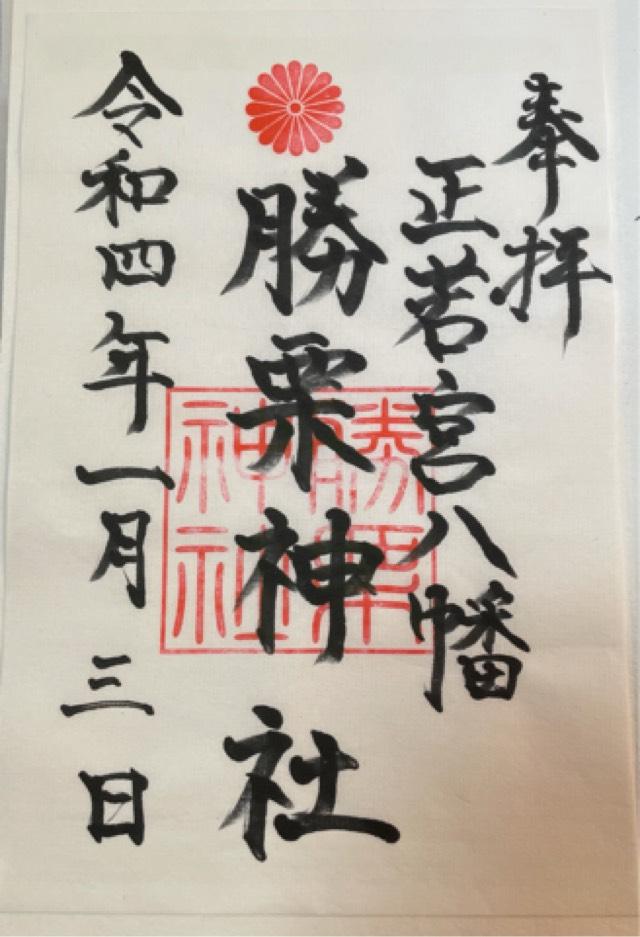 奉拝
正若宮八幡
勝栗神社
勝栗神社
令和四年一月三日